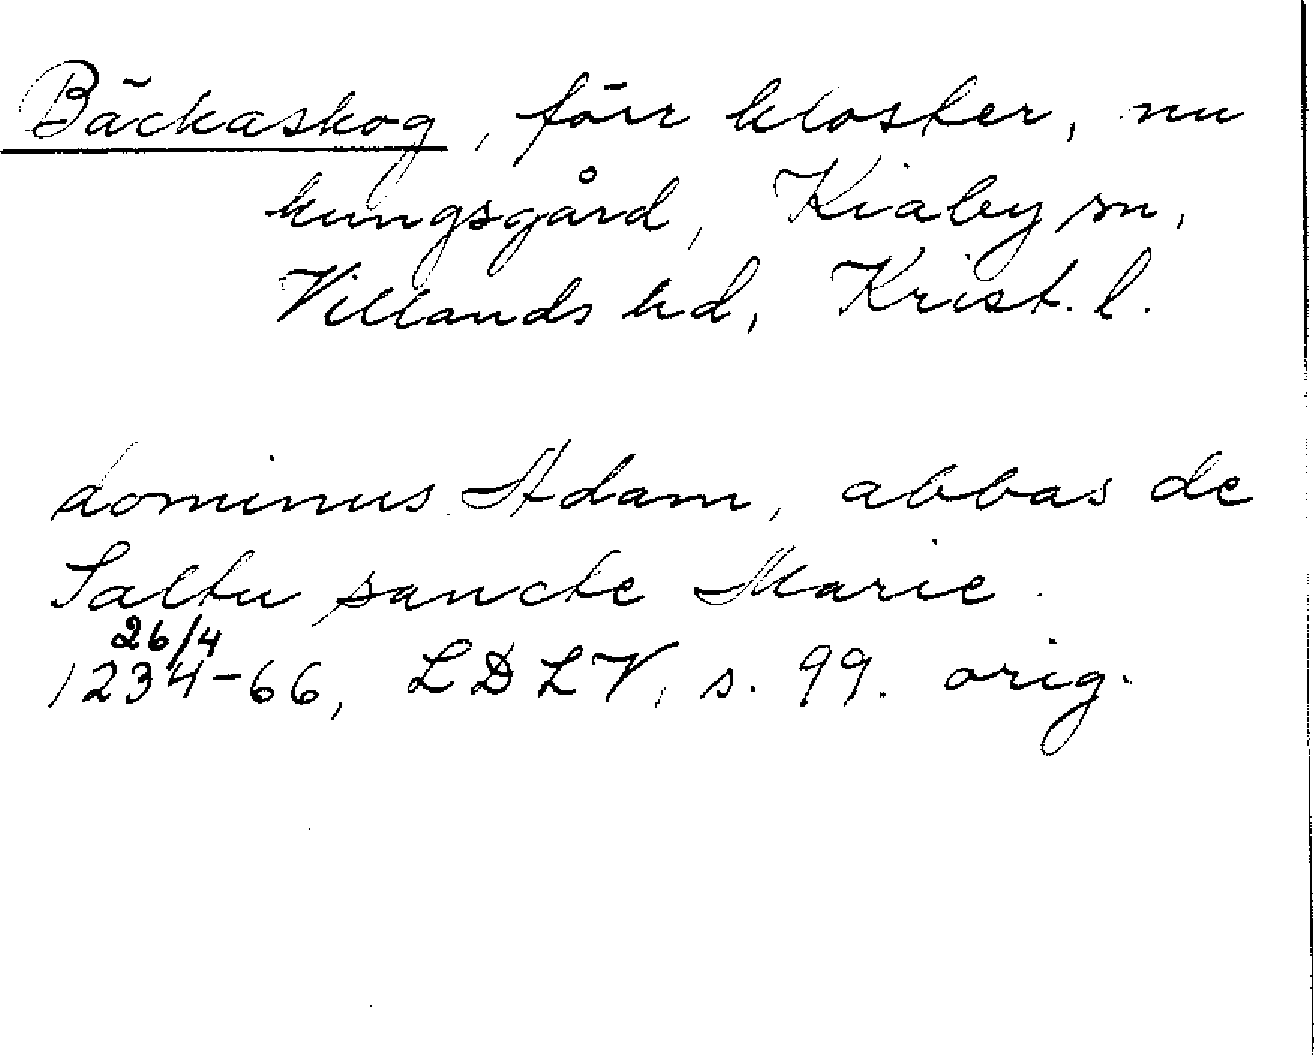 Bäckaskog, förr kloster, nu
kungsgård, Kiaby sn,
Villands hd, Krist. l.
dominus Adam, abbas de
Saltu sancte Marie.
26/4
1234-66, LDLV, s. 99. orig.